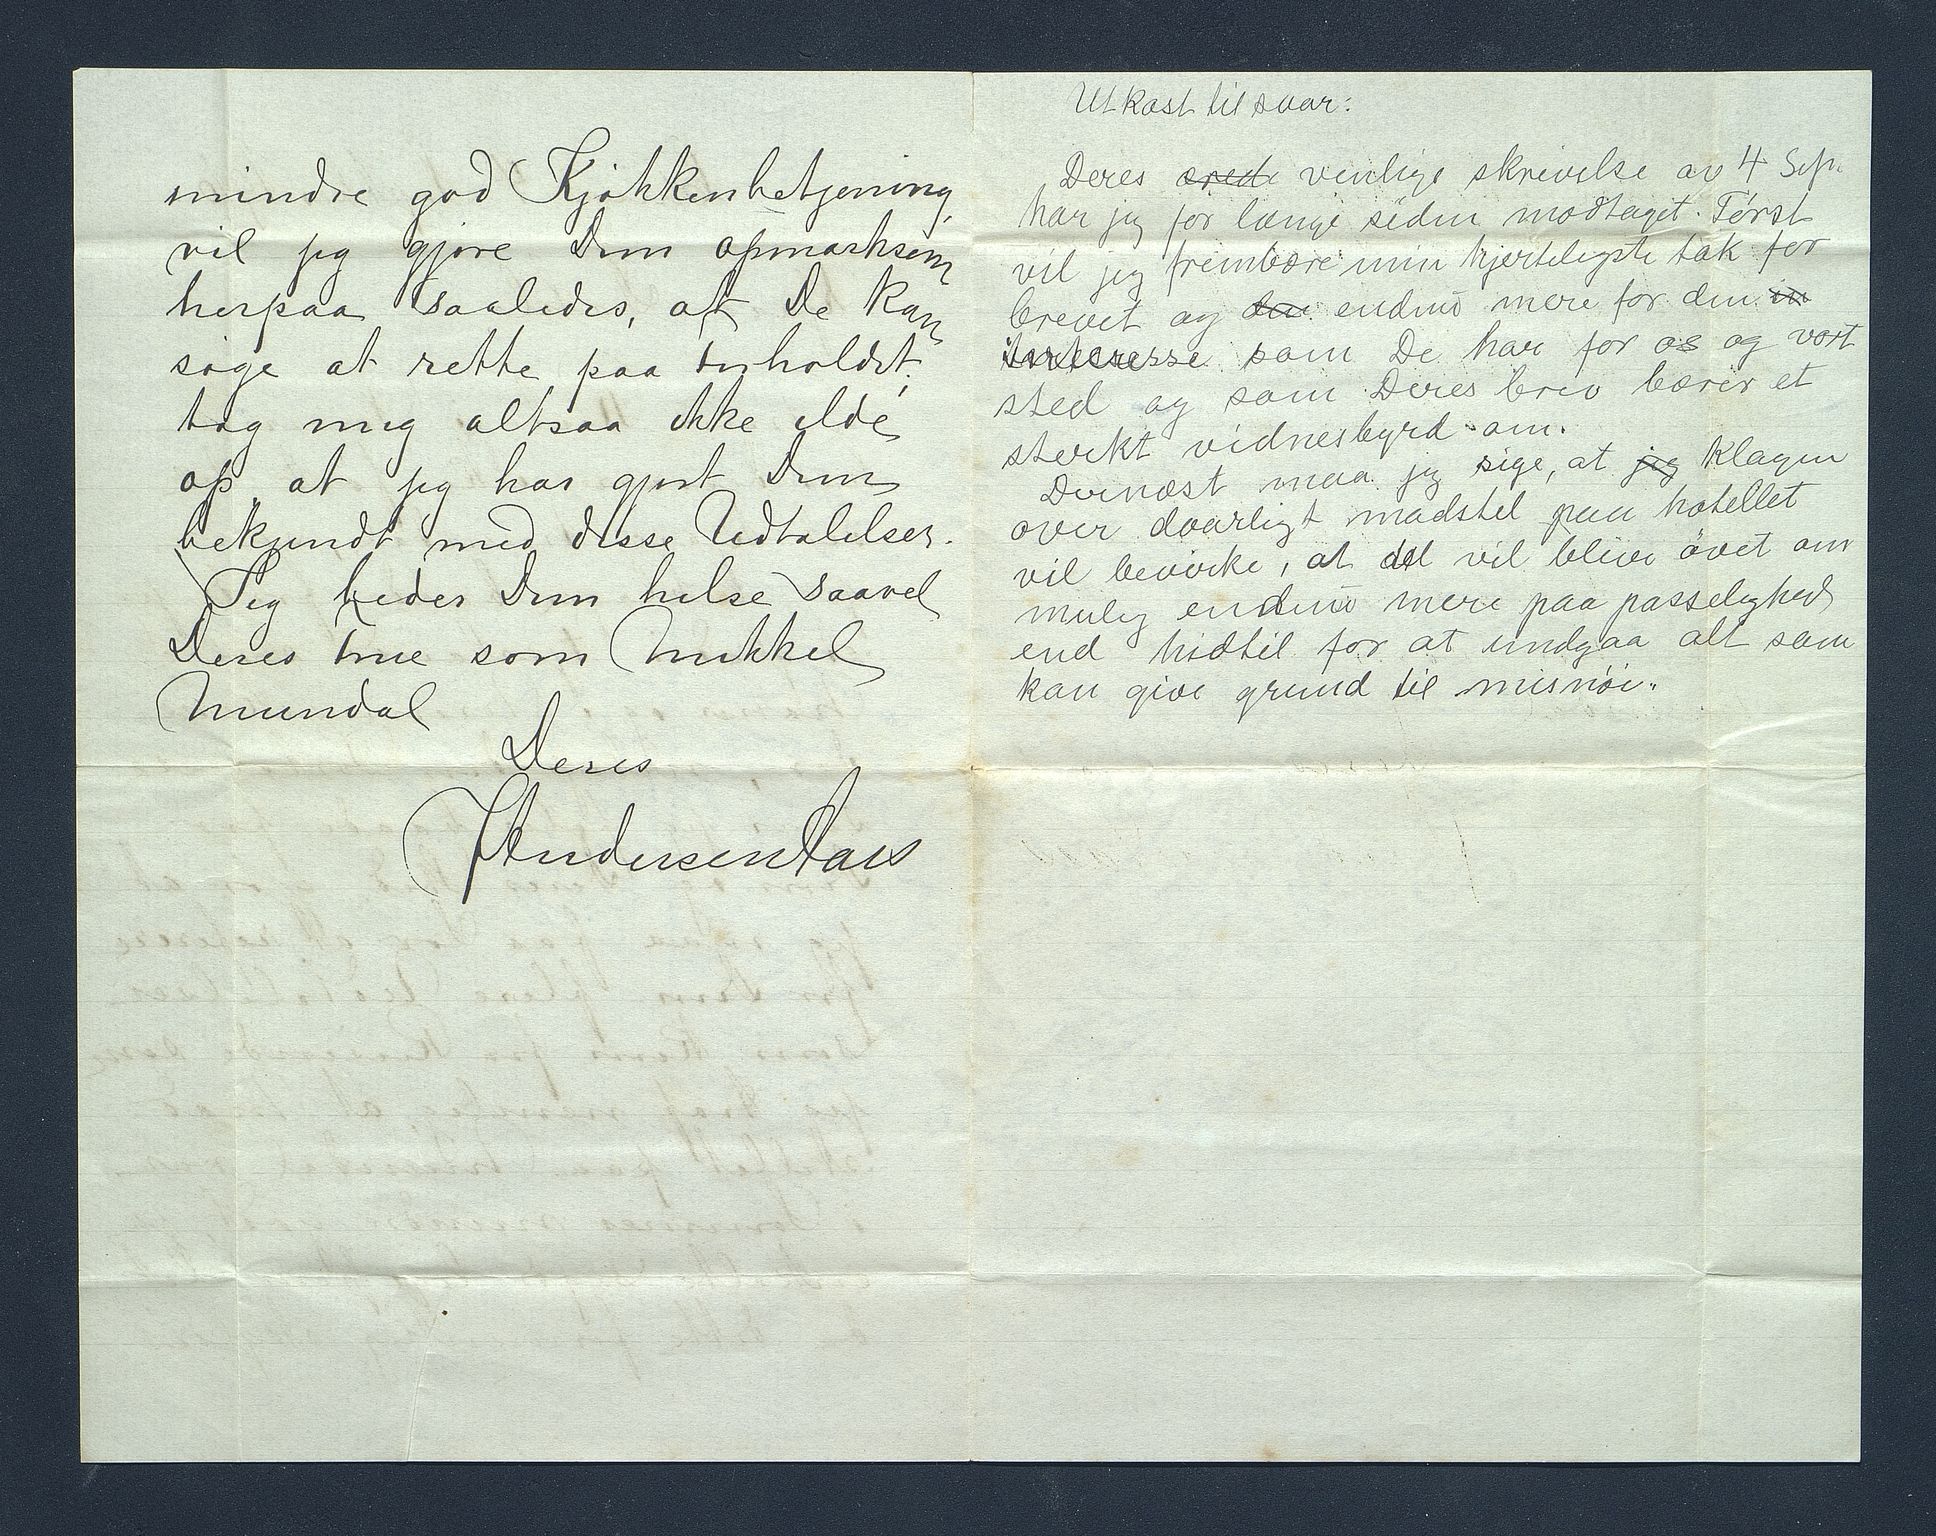 mindre god Kjøkkenbetjening,
vil jeg gjøre Dem opmærksom
herpaa saaledes, at De kan
søge at rette paa forholdet,
tag mig altsaa ikke ilde
op, at jeg har gjort Dem
bekjendt med disse Udtalelser.
Jeg beder Dem hilse saavel
Deres frue som Mikkel
Mundal
Deres
Utkast til svar:
Deres ærede venlige skrivelse av 4 Sept.
har jeg for længe siden modtaget. Først
vil jeg frembære min hjerteligste tak for
brevet og den endnu mere for den in
interesse som De har for os og vort
sted og som Deres brev bærer et
sterkt vidnesbyrd om.
Dernæst maa jeg sige, at jeg klagen
over daarligt madstel paa hotellet
vil bevirke, at det vil blive øvet om
mulig endnu mere paapasselighed
end hidtil for at undgaa alt som
kan give grund til misnøie.